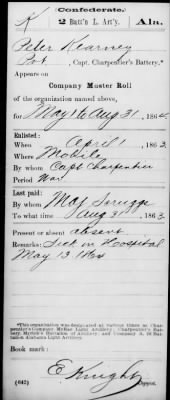 Confederate.
K 2 Batt'n L. Art'y. Ala.
Peter Kearney
Pvt, Capt. Charpentier's Battery.*
Appears on
Company Muster Roll
of the organization named above,
for May 16 Aug 31, 186
Enlisted:
When April 1, 186
Where Mobile
By whom Capt Charpentier
Period War
Last paid:
By whom Maj Scruggs
To what time Aug 31, 1863
Present or absent absent
Remarks: Sick in Hospital
May 13
*This organization was designated at various times as Char-
pentier's Company McRae Light Artillery, Charpentier's Bat-
tery, Myrick's Battalion of Artillery; and Company A, of Bat-
talion Alabama Light Artillery.
Book mark:
E Knight
(642) Copyist.